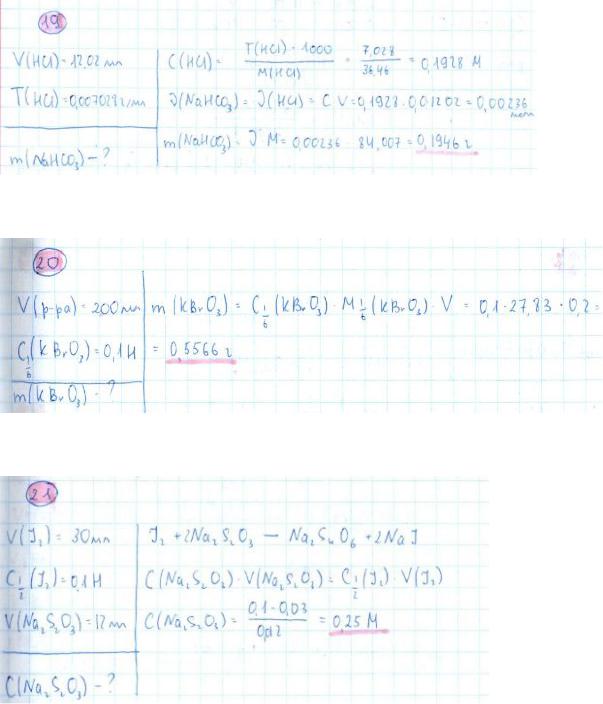 19
V(HCl) = 12,02 мл
T(HCl) = 0,007028 г/мл
m(NaHCO₃) - ?
C(HCl) = T(HCl) · 1000 / M(HCl) = 7,028 / 36,46 = 0,1928 M
ν(NaHCO₃) = ν(HCl) = C V = 0,1928 · 0,01202 = 0,00236 моль
m(NaHCO₃) = ν M = 0,00236 84,007 = 0,1946 г
20
V(р-ра) = 200 мл
C 1/6 (KBrO₃) = 0,1 Н
m(KBrO₃) - ?
m (KBrO₃) = C 1/6 (KBrO₃) · M 1/6 (KBrO₃) · V = 0,1 · 27,83 · 0,2 =
= 0,5566 г
21
V(J₂) = 30 мл
C 1/2 (J₂) = 0,1 Н
V(Na₂S₂O₃) = 12 мл
C(Na₂S₂O₃) - ?
J₂ + 2Na₂S₂O₃ — Na₂S₄O₆ + 2NaJ
C(Na₂S₂O₃) · V(Na₂S₂O₃) = C 1/2 (J₂) · V(J₂)
C(Na₂S₂O₃) = 0,1 · 0,03 / 0,012 = 0,25 M